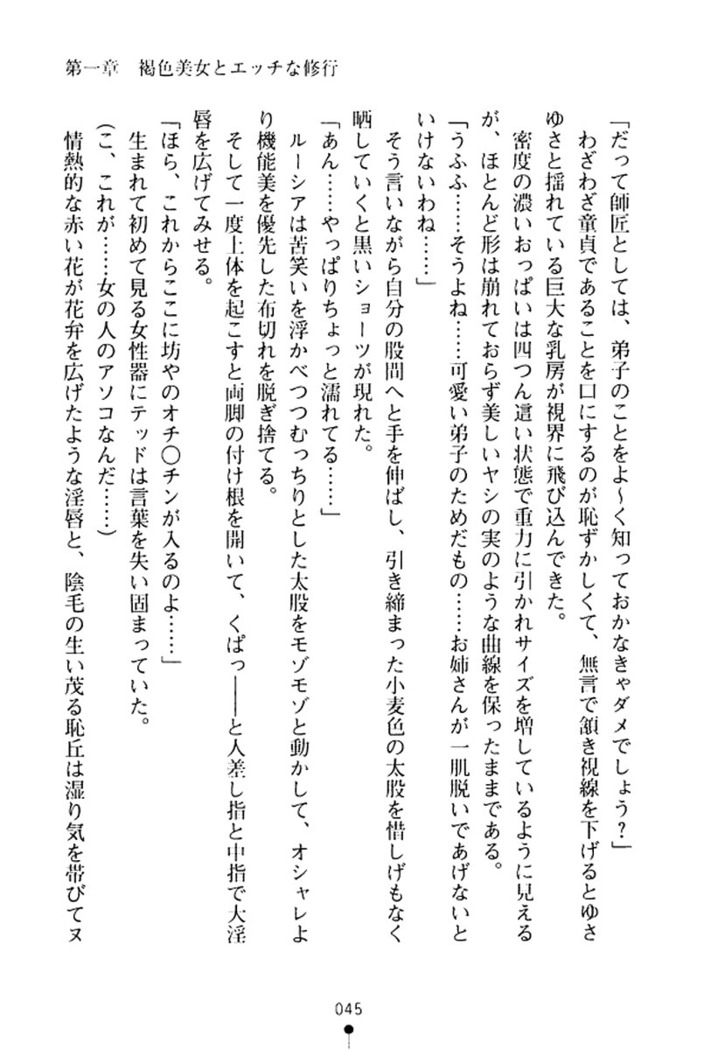 第一章　褐色美女とエッチな修行
「だって師匠としては、弟子のことをよ～く知っておかなきゃダメでしょう？」
わざわざ童貞であることを口にするのが恥ずかしくて、無言で頷き視線を下げるとゆさ
ゆさと揺れている巨大な乳房が視界に飛び込んできた。
密度の濃いおっぱいは四つん這い状態で重力に引かれサイズを増しているように見える
が、ほとんど形は崩れておらず美しいヤシの実のような曲線を保ったままである。
「うふふ……そうよね……可愛い弟子のためだもの……お姉さんが一肌脱いであげないと
いけないわね……」
そう言いながら自分の股間へと手を伸ばし、引き締まった小麦色の太股を惜しげもなく
晒していくと黒いショーツが現れた。
「あん……やっぱりちょっと濡れてる……」
ルーシアは苦笑いを浮かべつつむっちりとした太股をモゾモゾと動かして、オシャレよ
り機能美を優先した布切れを脱ぎ捨てる。
そして一度上体を起こすと両脚の付け根を開いて、くぱっ――と人差し指と中指で大淫
唇を広げてみせる。
「ほら、これからここに坊やのオチ〇チンが入るのよ……」
生まれて初めて見る女性器にテッドは言葉を失い固まっていた。
（こ、これが……女の人のアソコなんだ……）
情熱的な赤い花が花弁を広げたような淫唇と、陰毛の生い茂る恥丘は湿り気を帯びてヌ
045